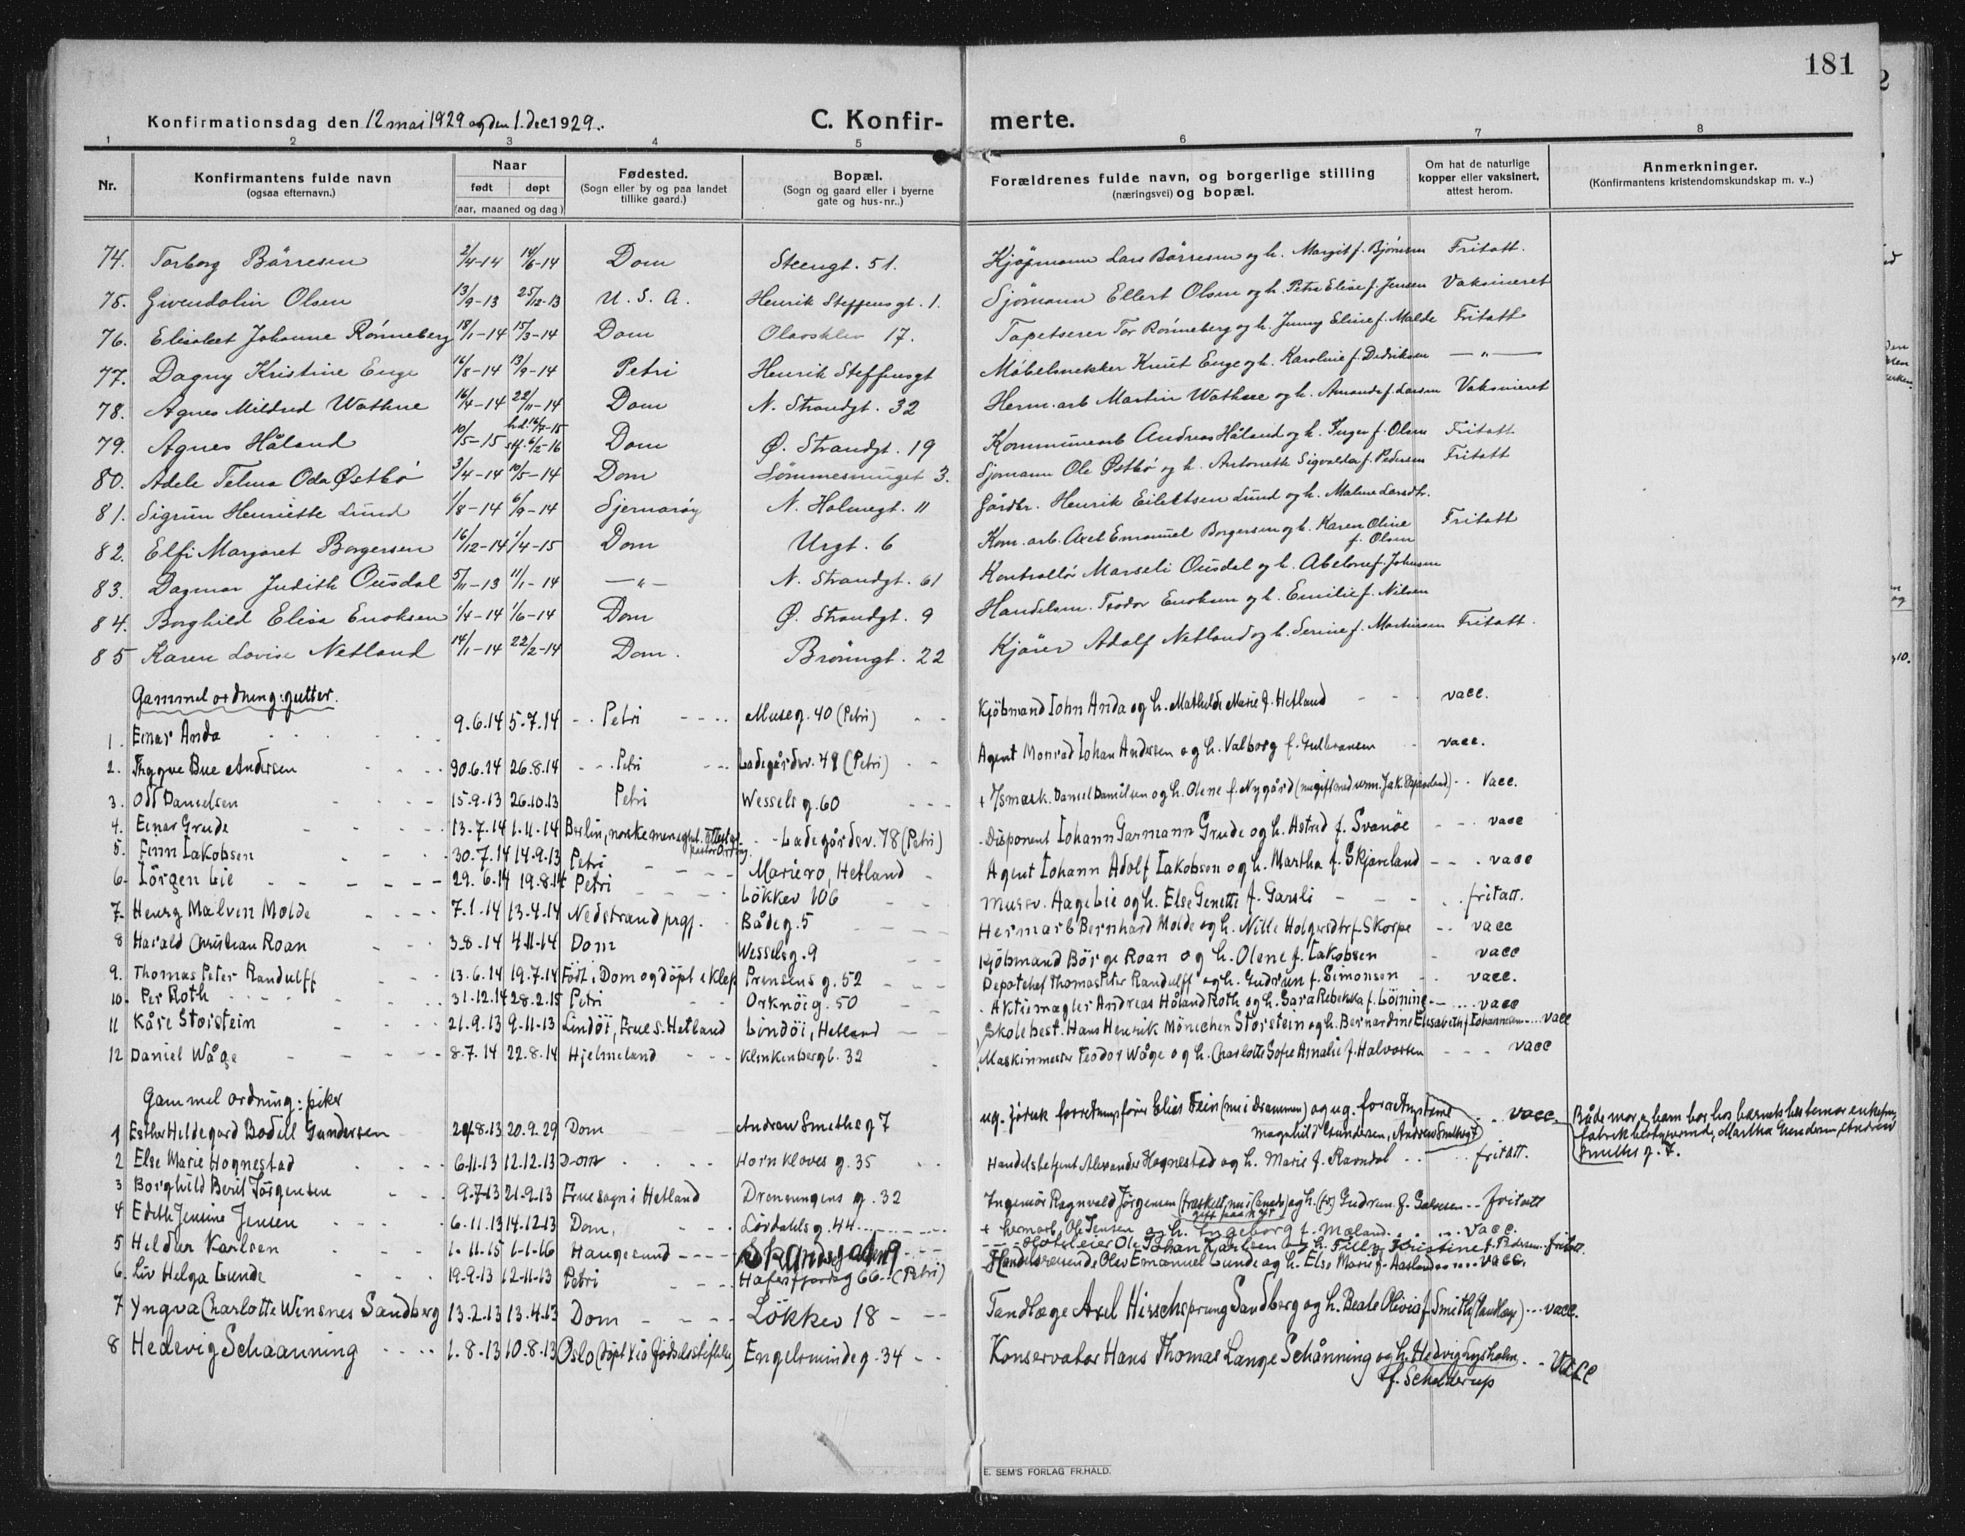 181
Konfirmationsdag den 12 mai 1929 og den 1. dec 1929. C. Konfir- merte.
1 2 3 4 5 6 7 8
Nr. Konfirmantens fulde navn (ogsaa efternavn.) Naar født døpt (aar, maaned og dag) Fødested. (Sogn eller by og paa landet tillike gaard.) Bopæl. (Sogn og gaard eller i byerne gate og hus-nr..) Forældrenes fulde navn, og borgerlige stilling (næringsvei) og bopæl. Om hat de naturlige kopper eller vaksinert, attest herom. Anmerkninger. (Konfirmantens kristendomskundskap m. v..)
74. Torborg Børresen 2/4-14 14/6-14 Dom Steengt. 51. Kjøpmann Lars Børresen og h. Margit f. Bjørnsen Fritatt.
75. Gwendolin Olsen 13/9-13 25/12-13 U. S. A. Henrik Steffensgt. 1. Sjømann Ellert Olsen og h. Petra Elise f. Jensen Vaksineret
76. Elisabet Johanne Rønneberg 18/1-14 15/3-14 Dom Olavsklev 17. Tapetserer Tor Rønneberg og h. Jenny Eline f. Malde Fritatt
77. Dagny Kristine Enge 16/8-14 13/9-14 Petri Henrik Steffensgt Møbelsnekker Knut Enge og h. Karoline f. Dedriksen — " —
78. Agnes Mildred Wathne 16/4-14 22/11-14 Dom N. Strandgt. 32 Herm. arb Martin Wathne og h. Amanda f. Larsen Vaksineret
79. Agnes Håland 10/5-15 hd. 14/7-15 stf. 6/2-16 Dom Ø. Strandgt. 19 Kommunearb Andreas Håland og h. Inger f. Olsen Fritatt
80. Adele Telma Oda Østbø 3/4-14 10/5-14 Dom Sømmesmuget 3. Sjømann Ole Østbø og h. Antonette Sigvalda f. Pedersen Fritatt
81. Sigrun Henriette Lund 1/8-14 6/9-14 Sjernarøy N. Holmegt. 11 Gårdbr. Henrik Eilertsen Lund og h. Malene Larsdt.
82. Elfi Margaret Borgersen 16/12-14 1/4-15 Dom Urgt. 6 Kom. arb. Axel Emanuel Borgersen og h. Karen Oline f. Olsen Fritatt
83. Dagmar Judith Ousdal 5/11-13 11/1-14 — " — N. Strandgt. 61 Kontrollør Marseli Ousdal og h. Abelone f. Johnsen
84. Borghild Elisa Enoksen 1/4-14 1/6-14 Dom Ø. Strandgt. 9 Handelsm. Teodor Enoksen og h. Emilie f. Nilsen
85 Karen Lovise Netland 14/1-14 22/2-14 Dom. Brønngt. 22 Kjører Adolf Netland og h. Serine f. Martinsen Fritatt.
Gammel ordning: gutter.
1. Einar Anda 9.6.14 5.7.14 Petri Museg. 40 (Petri) Kjöbmand Iohn Anda og h. Mathilde Marie f. Hetland vacc.
2. Thygve Bue Andersen 30.6.14 26.8.14 Petri Ladegårdsv. 49 (Petri) Agent Monrad Iohan Andersen og h. Valborg f. Gulbransen vacc.
3. Odd Danielsen 15.9.13 26.10.13 Petri Wesselsg. 60 + Ismask. Daniel Danielsen og h. Olene f. Nygård Vacc.
4. Einar Grude 13.7.14 1.11.14 Berlin, norske menegh. Ladegårdsv. 78 (Petri) Disponent Iohann Garmann Grude og h. Astrid f. Svanöe vacc
5. Finn Iakobsen 30.7.14 14.9.13 Petri Mariero, Hetland Agent Iohann Adolf Iakobsen og h. Martha f. Skjæveland vacc
6. Iörgen Lie 29.6.14 19.8.14 Petri Lökkev 106 Murer. Aage Lie og h. Else Genette f. Garsli fritatt.
7. Henry Mælven Molde 7.1.14 13.4.14 Nedstrand prgj. Bådeg. 5 Hermarb Bernhard Molde og h. Nille Holgersdtr f. Skorpe vacc
8 Harald Christian Roan 3.8.14 4.11.14 Dom Wesselsg. 9 Kjöbmand Börge Roan og h. Olene f. Iakobsen vacc
9. Thomas Peter Randulff 13.6.14 19.7.14 Födt i Dom og döpt i Klep Prinsens g. 52 Depotchef Thomas Peter Randulff og h. Gudrun f. Simonsen vacc.
10. Per Roth 31.12.14 28.2.15 Petri Orknöig. 50 Aktiemægler Andreas Håland Roth og h. Sara Rebekka f. Loining vacc
11 Kåre Storstein 21.9.13 9.11.13 Lindöi, Frue s. Hetland Lindöi, Hetland Skolebest. Hans Henrik Mönichen Storstein og h. Bernardine Elisabeth f. Iohannesen vacc
12 Daniel Våge 8.7.14 22.8.14 Hjelmeland Klinkenbergb. 32 Maskinmester Feodor Våge og h. Charlotte Sofie Amalie f. Halvorsen vacc
Gammel ordning: piker
1 Esther Hildegard Bodell Gundersen 29.8.13 20.9.29 Dom Andrew Smiths g 7 ug. forretningsfører Elias Fein (nu i Drammen) og ug. Magnhild Gundersen, Andrew Smithsgt 7 vacc. Både mor og barn bor hos barnets bestemor enkefru fabrikbestyrerinde, Martha Gundersen, Andrew Smiths g. 7.
2 Else Marie Hognestad 6.11.13 12.12.13 Dom Hornkloves g. 35 Handelsbetjent Alexander Hognestad og h. Marie f. Ravndal fritatt.
3 Borghild Berit Jörgensen 9.7.13 21.9.13 Frue sogn i Hetland Dronningens g. 32 Ingeniör Ragnvald Jörgensen (fraskilt, nu i Canada) og h. Gudrun f. fritatt
4 Edith Jensine Jensen 6.11.13 14.12.13 Dom. Lövdahlsg. 44 + hermarb. Ole Jensen og h. Ingeborg f. Mæland vacc.
5 Hildur Karlsen 1.11.15 1.1.16 Haugesund Skandsegaten 9 Hotelleier Ole Johan Karlsen og h. Tilly Kristine f. Pedersen fritatt.
6. Liv Helga Lunde 19.9.13 12.11.13 Petri Hafrsfjordsg 66 (Petri) Handelsreisende Olav Emanuel Lunde og h. Else Marie f. Aasland vacc.
7 Yngva Charlotte Winsnes Sandberg 13.2.13 13.4.13 Dom Lökkev 18 Tandlæge Axel Hirschsprung Sandberg og h. Beate Olivia f. Smith (Tandlæge) vacc.
8 Hedevig Schaanning 1.8.13 10.8.13 Oslo (döpt i Födselsstiftelsen) Engelsmindeg. 34 Konservator Hans Thomas Lange Schånning og h. Hedvig f. Schelderup vacc
E. SEM'S FORLAG FR.HALD.